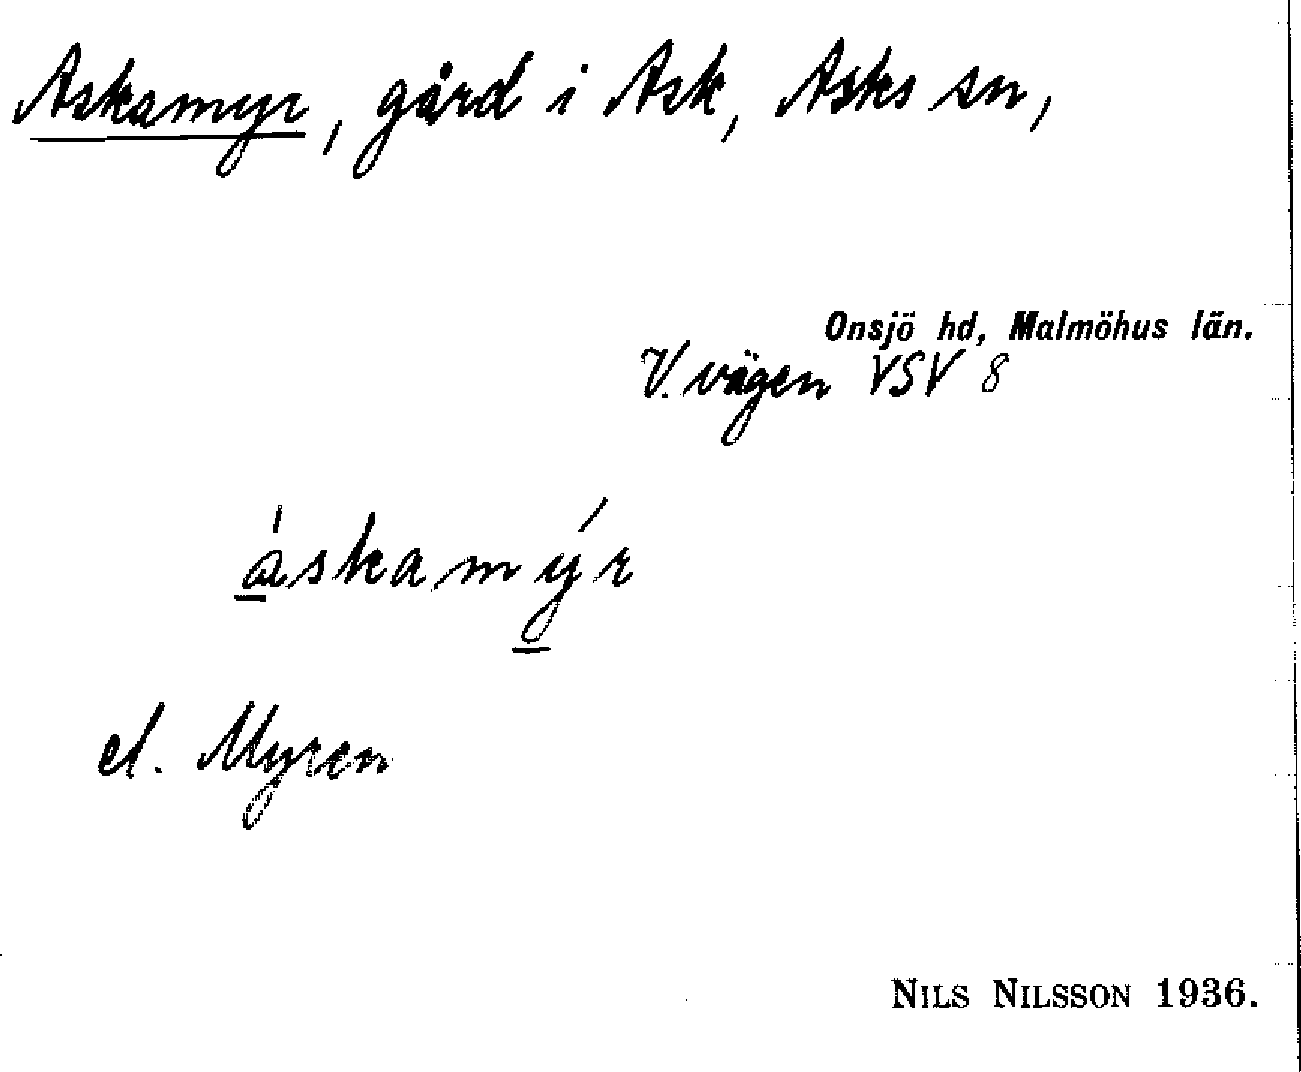 Askamyr, gård i Ask, Asks sn,
Onsjö hd, Malmöhus län.
V. vägen VSV 8
áskamýr
el. Myren
NILS NILSSON 1936.